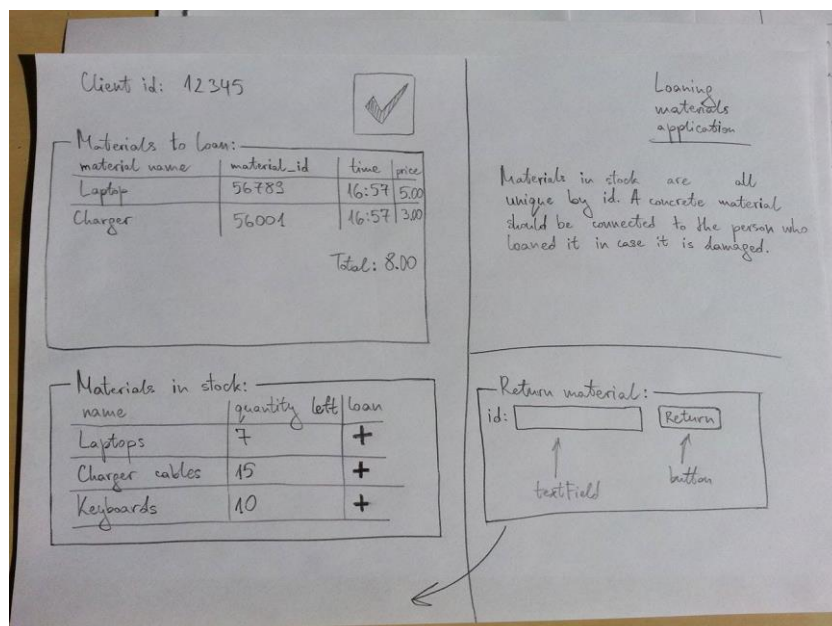 Client id: 12345
Materials to Loan:
material name material_id time price
Laptop 56789 16:57 5.00
Charger 56001 16:57 3.00
Total: 8.00
Materials in stock:
name quantity left loan
Laptops 7 +
Charger cables 15 +
Keyboards 10 +
Loaning
materials
application
Materials in stock are all
unique by id. A concrete material
should be connected to the person who
loaned it in case it is damaged.
Return material:
id: Return
textField button